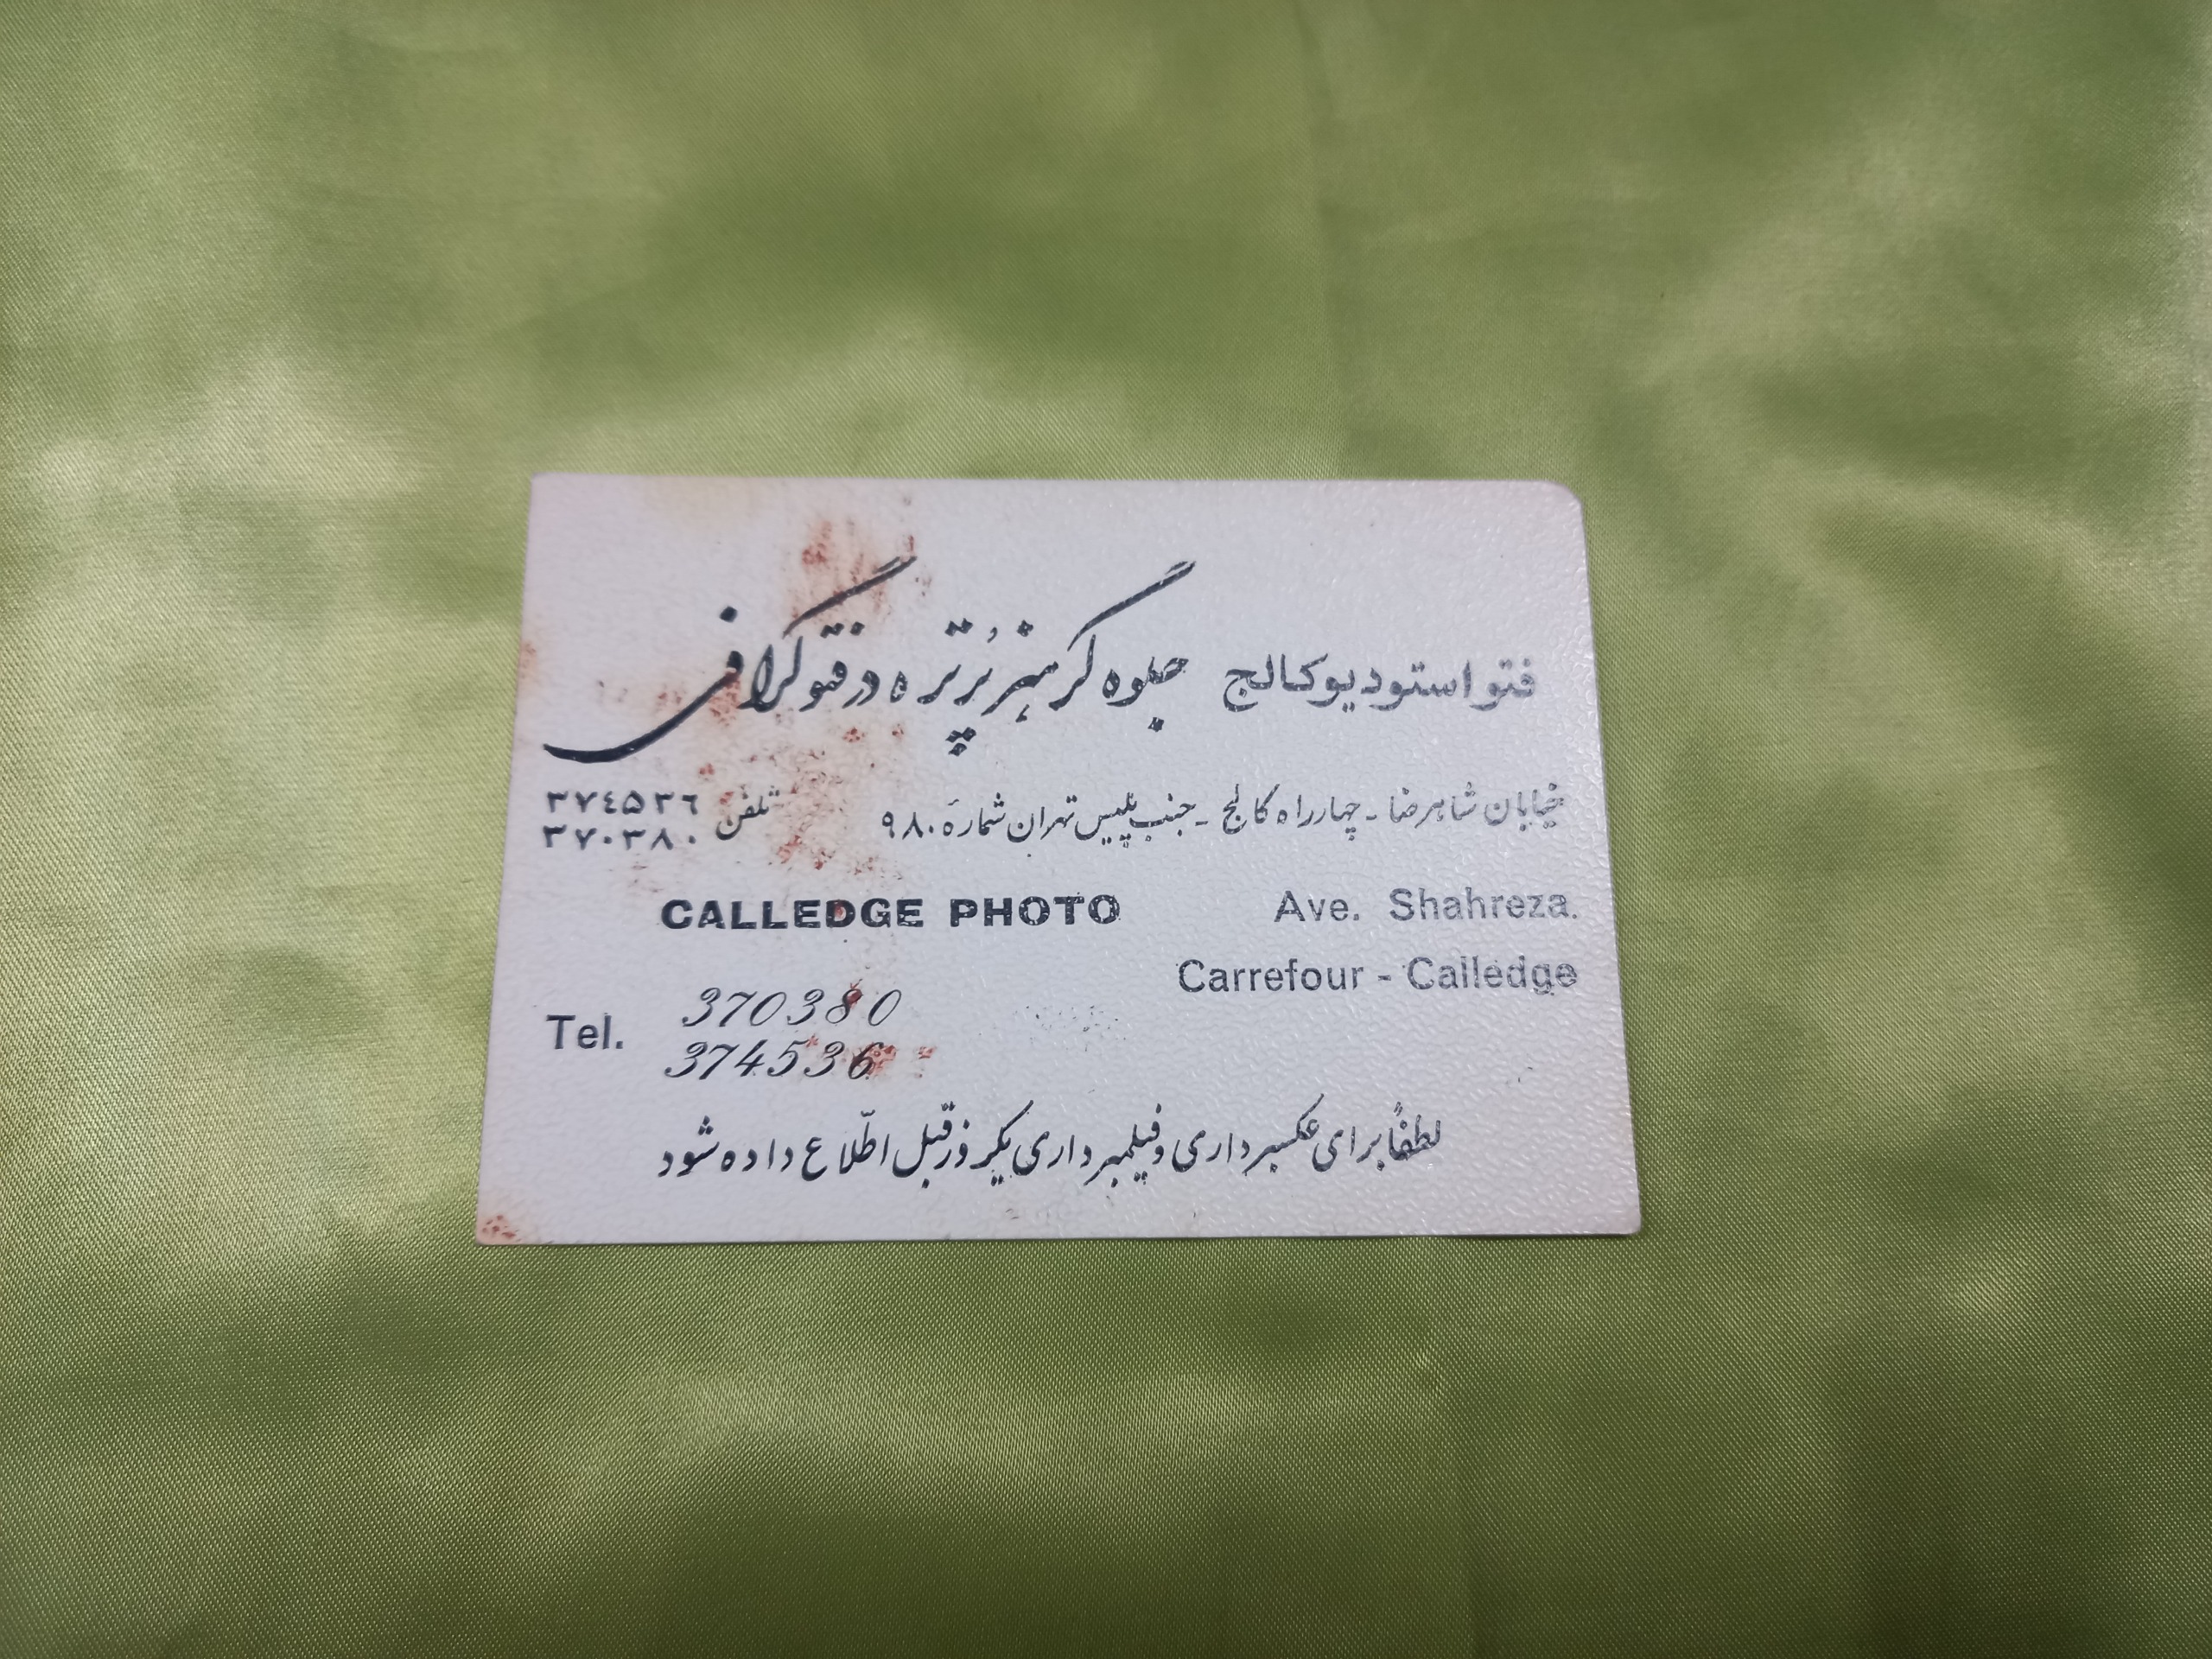 فتو استودیو کالج جلوه گر هنر پُرتره در فتوگرافی
خیابان شاهرضا - چهارراه کالج - جنب پلیس تهران شمارهٔ ۹۸۰ تلفن ۳۷٤۵۳٦
۳۷۰۳۸۰
CALLEDGE PHOTO Ave. Shahreza.
Carrefour - Calledge
Tel. 370380
374536
لطفاً برای عکسبرداری و فیلمبرداری یکروز قبل اطّلاع داده شود